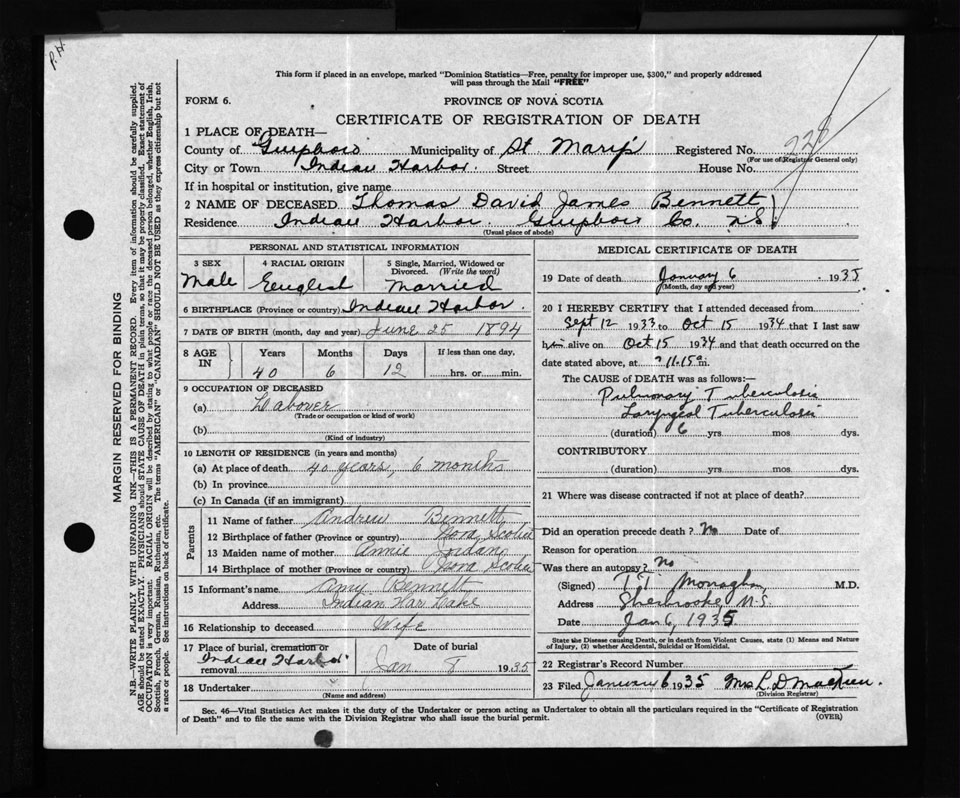 P.H.
This form if placed in an envelope, marked "Dominion Statistics—Free, penalty for improper use, $300," and properly addressed
will pass through the Mail "FREE"
FORM 6.
PROVINCE OF NOVA SCOTIA
CERTIFICATE OF REGISTRATION OF DEATH
1 PLACE OF DEATH—
County of Guysboro Municipality of St Mary's Registered No. 228
(For use of Registrar General only)
City or Town Indian Harbor Street House No.
If in hospital or institution, give name
2 NAME OF DECEASED Thomas David James Bennett
Residence Indian Harbor Guysboro Co. N.S.
(Usual place of abode)
PERSONAL AND STATISTICAL INFORMATION
3 SEX 4 RACIAL ORIGIN 5 Single, Married, Widowed or
Divorced. (Write the word)
Male English Married
6 BIRTHPLACE (Province or country) Indian Harbor
7 DATE OF BIRTH (month, day and year) June 25 1894
8 AGE IN Years Months Days If less than one day,
40 6 12 hrs. or min.
9 OCCUPATION OF DECEASED
(a) Labourer
(Trade or occupation or kind of work)
(b)
(Kind of industry)
10 LENGTH OF RESIDENCE (in years and months)
(a) At place of death 40 years, 6 months
(b) In province
(c) In Canada (if an immigrant)
Parents
11 Name of father Andrew Bennett
12 Birthplace of father (Province or country) Nova Scotia
13 Maiden name of mother Annie Jordan
14 Birthplace of mother (Province or country) Nova Scotia
15 Informant's name Amy Bennett
Address Indian Har Lake
16 Relationship to deceased Wife
17 Place of burial, cremation or Date of burial
removal Indian Harbor Jan 8 1935
18 Undertaker
(Name and address)
MEDICAL CERTIFICATE OF DEATH
19 Date of death January 6 1935
(Month, day and year)
20 I HEREBY CERTIFY that I attended deceased from
Sept 12 1933 to Oct 15 1934 that I last saw
him alive on Oct 15 1934 and that death occurred on
date stated above, at ? 11.15 a m.
The CAUSE OF DEATH was as follows:—
Pulmonary Tuberculosis
Laryngeal Tuberculosis
(duration) 6 yrs mos dys.
CONTRIBUTORY
(duration) yrs mos dys.
21 Where was disease contracted if not at place of death?
Did an operation precede death? No Date of
Reason for operation
Was there an autopsy? No
(Signed) Monaghan M.D.
Address Sherbrooke, N.S.
Date Jan 6, 1935
State the Disease causing Death, or in death from Violent Causes, state (1) Means and Nature
of Injury, (2) whether Accidental, Suicidal or Homicidal.
22 Registrar's Record Number
23 Filed January 6 1935 Mrs L. D.
(Division Registrar)
Sec. 46—Vital Statistics Act makes it the duty of the Undertaker or person acting as Undertaker to obtain all the particulars required in the "Certificate of Registration
of Death" and to file the same with the Division Registrar who shall issue the burial permit.
(OVER)
MARGIN RESERVED FOR BINDING
N.B.—WRITE PLAINLY WITH UNFADING INK—THIS IS A PERMANENT RECORD. Every item of information should be carefully supplied.
AGE should be stated EXACTLY. PHYSICIANS should STATE CAUSE OF DEATH in plain terms, so that it may be properly classified. Exact statement of
OCCUPATION is very important. RACIAL ORIGIN will be described by stating to what people or race the deceased person belonged, whether English, Irish,
Scottish, French, German, Russian, Ruthenian, etc. The terms "AMERICAN" or "CANADIAN" SHOULD NOT BE USED as they express citizenship but not
a race or people. See instructions on back of certificate.